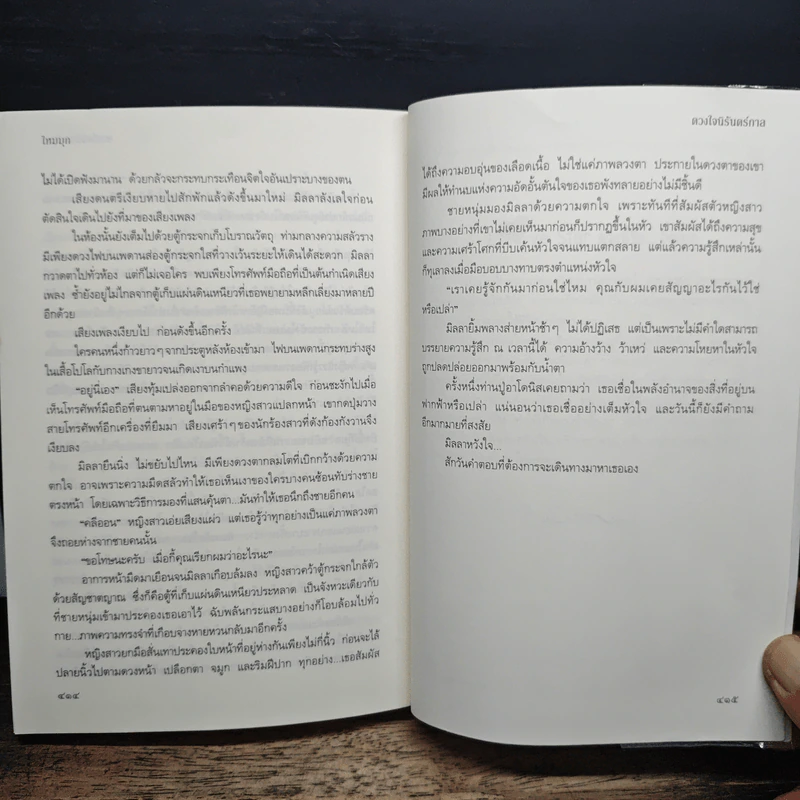 ไหมมุก
ไม่ได้เปิดฟังมานาน ด้วยกลัวจะกระทบกระเทือนจิตใจอันเปราะบางของตน
เสียงดนตรีเงียบหายไปสักพักแล้วดังขึ้นมาใหม่ มิลลาลังเลใจก่อน
ตัดสินใจเดินไปยังที่มาของเสียงเพลง
ในห้องนั้นยังเต็มไปด้วยตู้กระจกเก็บโบราณวัตถุ ท่ามกลางความสลัวราง
มีเพียงดวงไฟบนเพดานส่องตู้กระจกใสที่วางเว้นระยะให้เดินได้สะดวก มิลลา
กวาดตาไปทั่วห้อง แต่ก็ไม่เจอใคร พบเพียงโทรศัพท์มือถือที่เป็นต้นกำเนิดเสียง
เพลง ซ้ำยังอยู่ไม่ไกลจากตู้เก็บแผ่นดินเหนียวที่เธอพยายามหลีกเลี่ยงมาหลายปี
อีกด้วย
เสียงเพลงเงียบไป ก่อนดังขึ้นอีกครั้ง
ใครคนหนึ่งก้าวยาวๆจากประตูหลังห้องเข้ามา ไฟบนเพดานกระทบร่างสูง
ในเสื้อโปโลกับกางเกงขายาวจนเกิดเงาบนกำแพง
“อยู่นี่เอง” เสียงทุ้มเปล่งออกจากลำคอด้วยความดีใจ ก่อนชะงักไปเมื่อ
เห็นโทรศัพท์มือถือที่ตนตามหาอยู่ในมือของหญิงสาวแปลกหน้า เขากดปุ่มวาง
สายโทรศัพท์อีกเครื่องที่ยืมมา เสียงเศร้าๆของนักร้องสาวที่ดังก้องกังวานจึง
เงียบลง
มิลลายืนนิ่ง ไม่ขยับไปไหน มีเพียงดวงตากลมโตที่เบิกกว้างด้วยความ
ตกใจ อาจเพราะความมืดสลัวทำให้เธอเห็นเงาของใครบางคนซ้อนทับร่างชาย
ตรงหน้า โดยเฉพาะวิธีการมองที่แสนคุ้นตา...มันทำให้เธอนึกถึงชายอีกคน
“คลีออน” หญิงสาวเอ่ยเสียงแผ่ว แต่เธอรู้ว่าทุกอย่างเป็นแค่ภาพลวงตา
จึงถอยห่างจากชายคนนั้น
“ขอโทษนะครับ เมื่อกี้คุณเรียกผมว่าอะไรนะ”
อาการหน้ามืดมาเยือนจนมิลลาเกือบล้มลง หญิงสาวคว้าตู้กระจกใกล้ตัว
ด้วยสัญชาตญาณ ซึ่งก็คือตู้ที่เก็บแผ่นดินเหนียวประหลาด เป็นจังหวะเดียวกับ
ที่ชายหนุ่มเข้ามาประคองเธอเอาไว้ ฉับพลันกระแสบางอย่างก็โอบล้อมไปทั่ว
กาย...ภาพความทรงจำที่เกือบจางหายหวนกลับมาอีกครั้ง
หญิงสาวยกมือสั่นเทาประคองใบหน้าที่อยู่ห่างกันเพียงไม่กี่นิ้ว ก่อนจะไล้
ปลายนิ้วไปตามดวงหน้า เปลือกตา จมูก และริมฝีปาก ทุกอย่าง...เธอสัมผัส
๔๑๔
ดวงใจนิรันดร์กาล
ได้ถึงความอบอุ่นของเลือดเนื้อ ไม่ใช่แค่ภาพลวงตา ประกายในดวงตาของเขา
มีผลให้ทำนบแห่งความอัดอั้นตันใจของเธอพังทลายอย่างไม่มีชิ้นดี
ชายหนุ่มมองมิลลาด้วยความตกใจ เพราะทันทีที่สัมผัสตัวหญิงสาว
ภาพบางอย่างที่เขาไม่เคยเห็นมาก่อนก็ปรากฏขึ้นในหัว เขาสัมผัสได้ถึงความสุข
และความเศร้าโศกที่บีบเค้นหัวใจจนแทบแตกสลาย แต่แล้วความรู้สึกเหล่านั้น
ก็ทุเลาลงเมื่อมือบอบบางทาบตรงตำแหน่งหัวใจ
“เราเคยรู้จักกันมาก่อนใช่ไหม คุณกับผมเคยสัญญาอะไรกันไว้ใช่
หรือเปล่า”
มิลลายิ้มพลางส่ายหน้าช้าๆ ไม่ได้ปฏิเสธ แต่เป็นเพราะไม่มีคำใดสามารถ
บรรยายความรู้สึก ณ เวลานี้ได้ ความอ้างว้าง ว้าเหว่ และความโหยหาในหัวใจ
ถูกปลดปล่อยออกมาพร้อมกับน้ำตา
ครั้งหนึ่งท่านปู่อาโดนิสเคยถามว่า เธอเชื่อในพลังอำนาจของสิ่งที่อยู่บน
ฟากฟ้าหรือเปล่า แน่นอนว่าเธอเชื่ออย่างเต็มหัวใจ และวันนี้ก็ยังมีคำถาม
อีกมากมายที่สงสัย
มิลลาหวังใจ...
สักวันคำตอบที่ต้องการจะเดินทางมาหาเธอเอง
๔๑๕